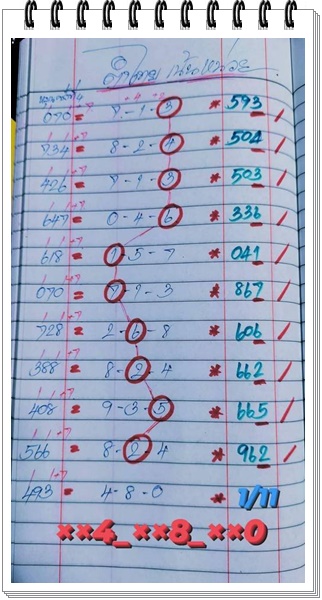 เน้นหน่วย
+4 +2
090 = 7-1-3 * 593
734 = 8-2-4 * 504
426 = 7-1-3 * 503
647 = 0-4-6 * 336
618 = 1-5-7 * 041
090 = 7-1-3 * 867
728 = 2-6-8 * 606
388 = 8-2-4 * 662
408 = 9-3-5 * 665
566 = 8-2-4 * 962
493 = 4-8-0 * 1/11
××4_××8_××0